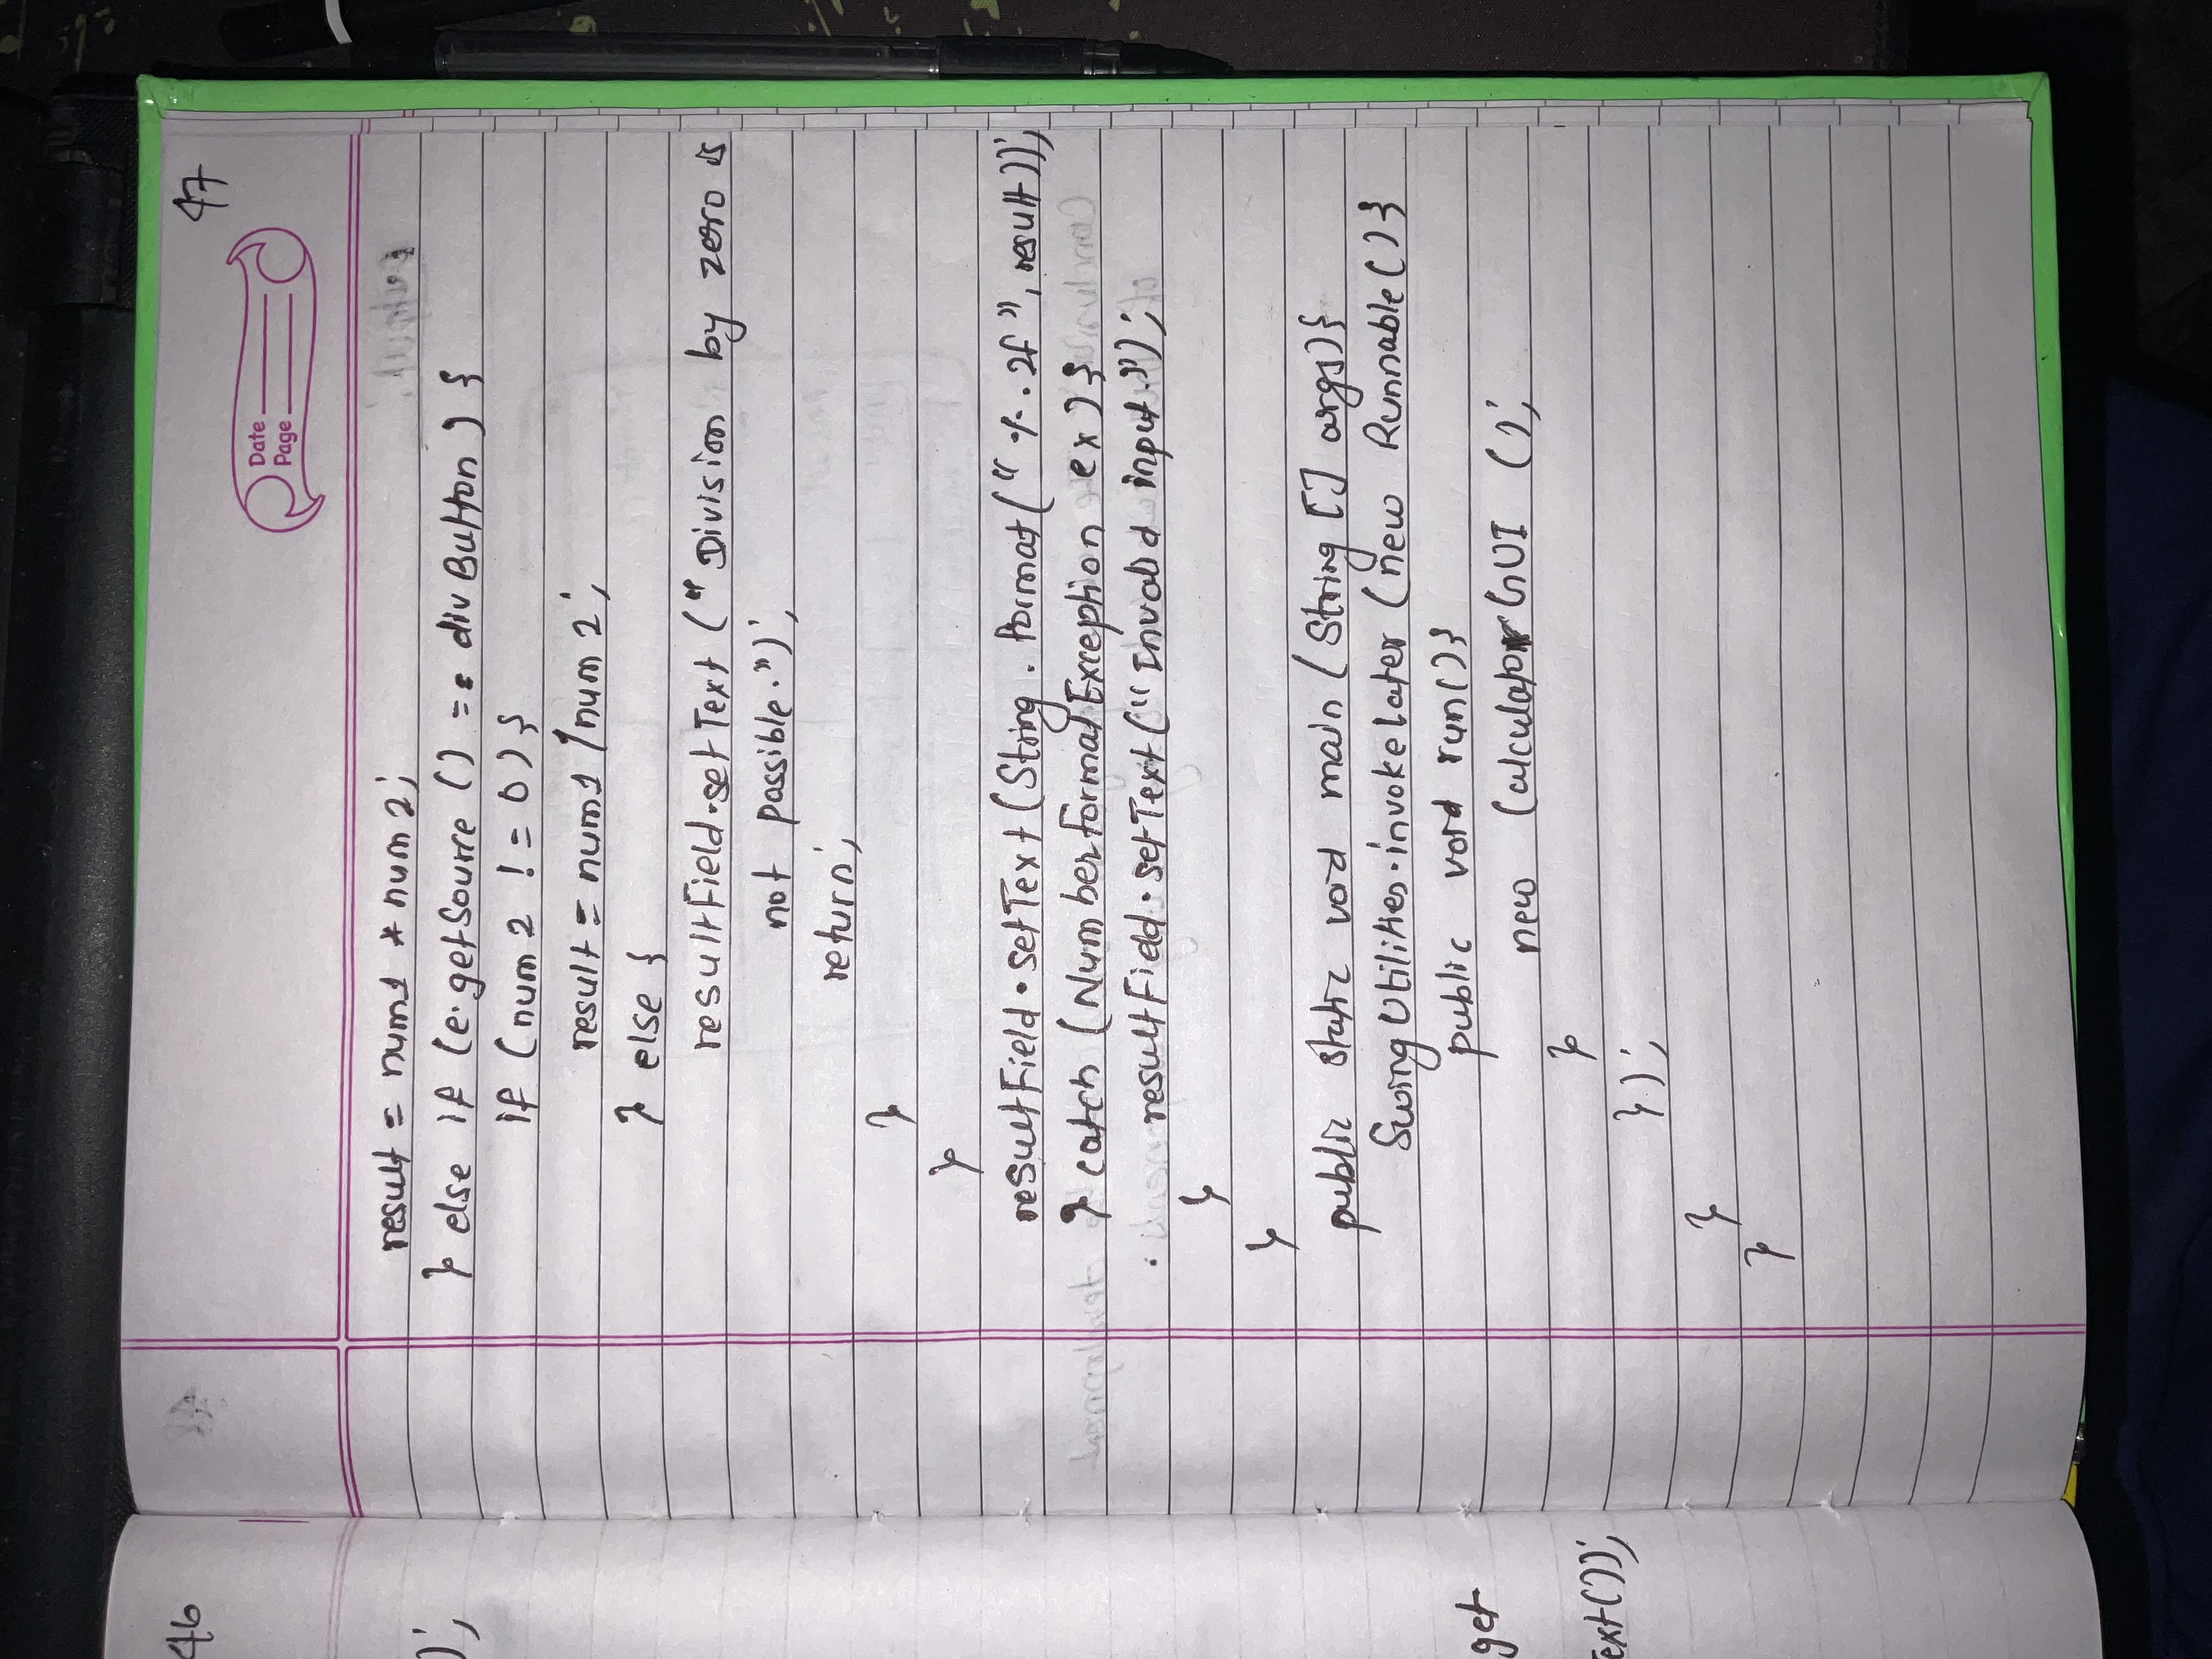 46
47
Date
Page
result = num1 * num2;
} else if (e.getSource () == divButton) {
if (num2 != 0) {
result = num1 / num2;
} else {
resultField.setText ("Division by zero is
not possible.");
return;
}
}
resultField.setText (String.format ("%.2f", result));
} catch (NumberFormatException ex) {
resultField.setText ("Invalid input.");
}
}
public static void main (String [] args) {
SwingUtilities.invokeLater (new Runnable () {
public void run() {
new CalculatorGUI ();
}
});
}
}
);
get
ext());